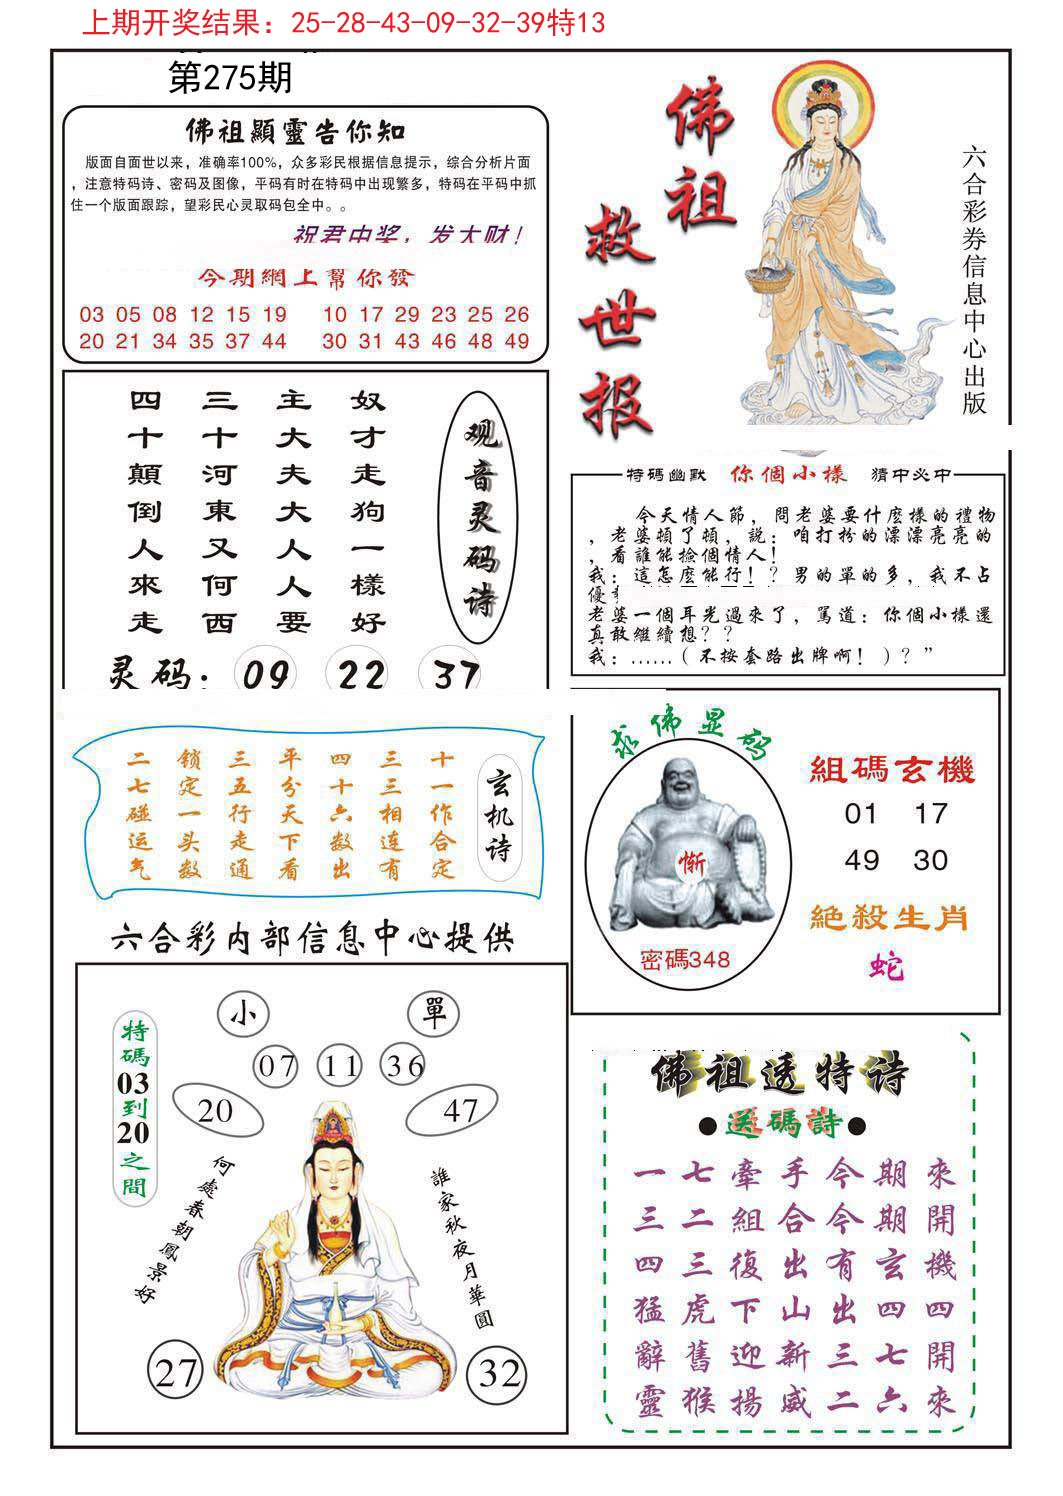 上期开奖结果：25-28-43-09-32-39特13
第275期
佛祖顯靈告你知
版面自面世以来，准确率100%，众多彩民根据信息提示，综合分析片面
，注意特码诗、密码及图像，平码有时在特码中出现繁多，特码在平码中抓
住一个版面跟踪，望彩民心灵取码包全中。。
祝君中奖，发大财！
今期網上幫你發
03 05 08 12 15 19 10 17 29 23 25 26
20 21 34 35 37 44 30 31 43 46 48 49
佛祖
救世报
六合彩券信息中心出版
观音灵码诗
奴才走狗一樣好
主大夫大人人要
三十河東又何西
四十顛倒人來走
灵码：09 22 37
特碼幽默 你個小樣 猜中必中
今天情人節，問老婆要什麼樣的禮物
，老婆頓了頓，説：咱打扮的漂漂亮亮的
，看誰能撿個情人！
我：這怎麼能行！？男的單的多，我不占
優
老婆一個耳光過來了，罵道：你個小樣還
真敢繼續想？？
我：……（不按套路出牌啊！）？”
玄机诗
十一作合定
三三相连有
四十六数出
平分天下看
三五行走通
锁定一头数
二七碰运气
求佛显码
惭
密碼348
組碼玄機
01 17
49 30
絕殺生肖
蛇
六合彩内部信息中心提供
特碼03到20之間
小 單
07 11 36
20 47
何處春朝鳳景好
誰家秋夜月華圓
27 32
佛祖透特诗
●送碼詩●
一七牽手今期來
三二組合今期開
四三復出有玄機
猛虎下山出四四
辭舊迎新三七開
靈猴揚威二六來